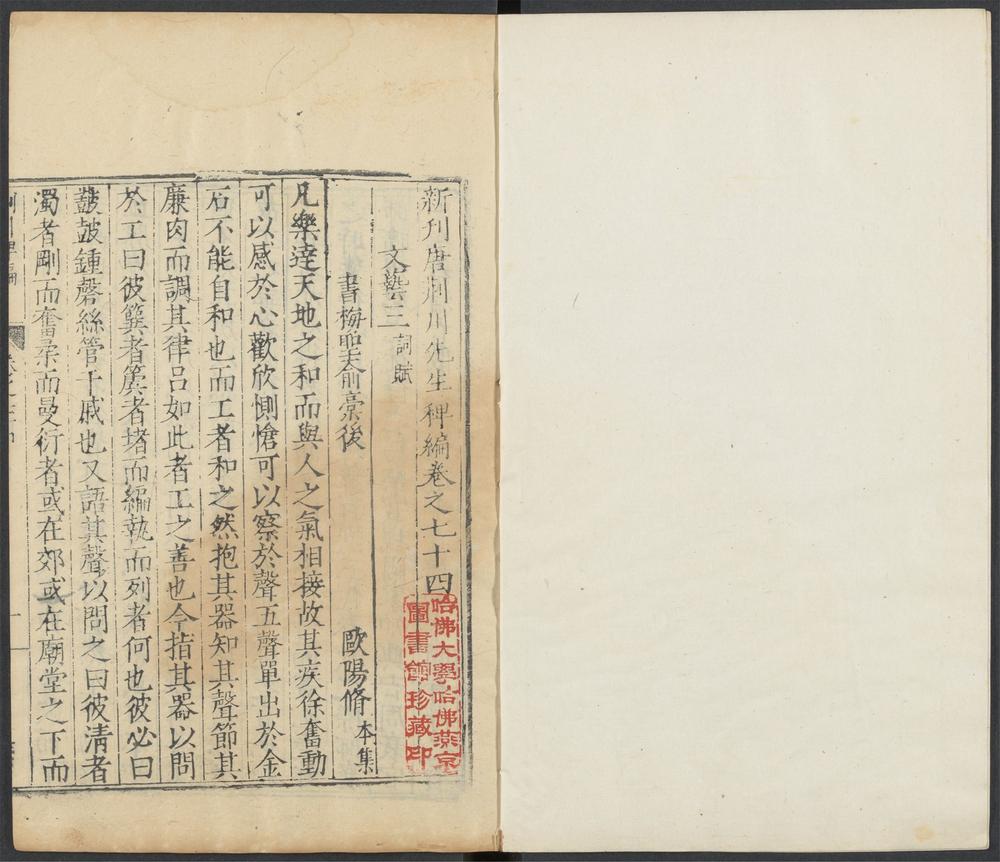 新刊唐荊川先生稗編卷之七十四
文藝三 詞賦
書梅聖俞稾後 歐陽脩 本集
凡樂達天地之和而與人之氣相接故其疾徐奮動
可以感於心歡欣惻愴可以察於聲五聲單出於金
石不能自和也而工者和之然抱其器知其聲節其
廉肉而調其律呂如此者工之善也今指其器以問
於工曰彼簨者簴者堵而編執而列者何也彼必曰
鼗鼓鍾磬絲管干戚也又語其聲以問之曰彼清者
濁者剛而奮柔而曼衍者或在郊或在廟堂之下而
哈佛大學哈佛燕京
圖書館珍藏印